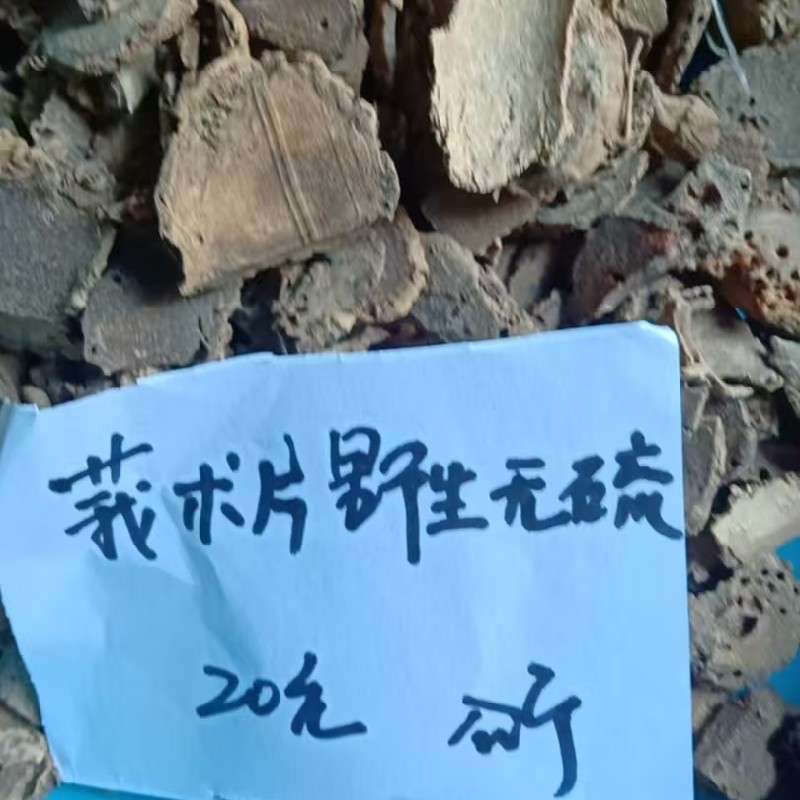 莪术片野生无硫
20元 斤